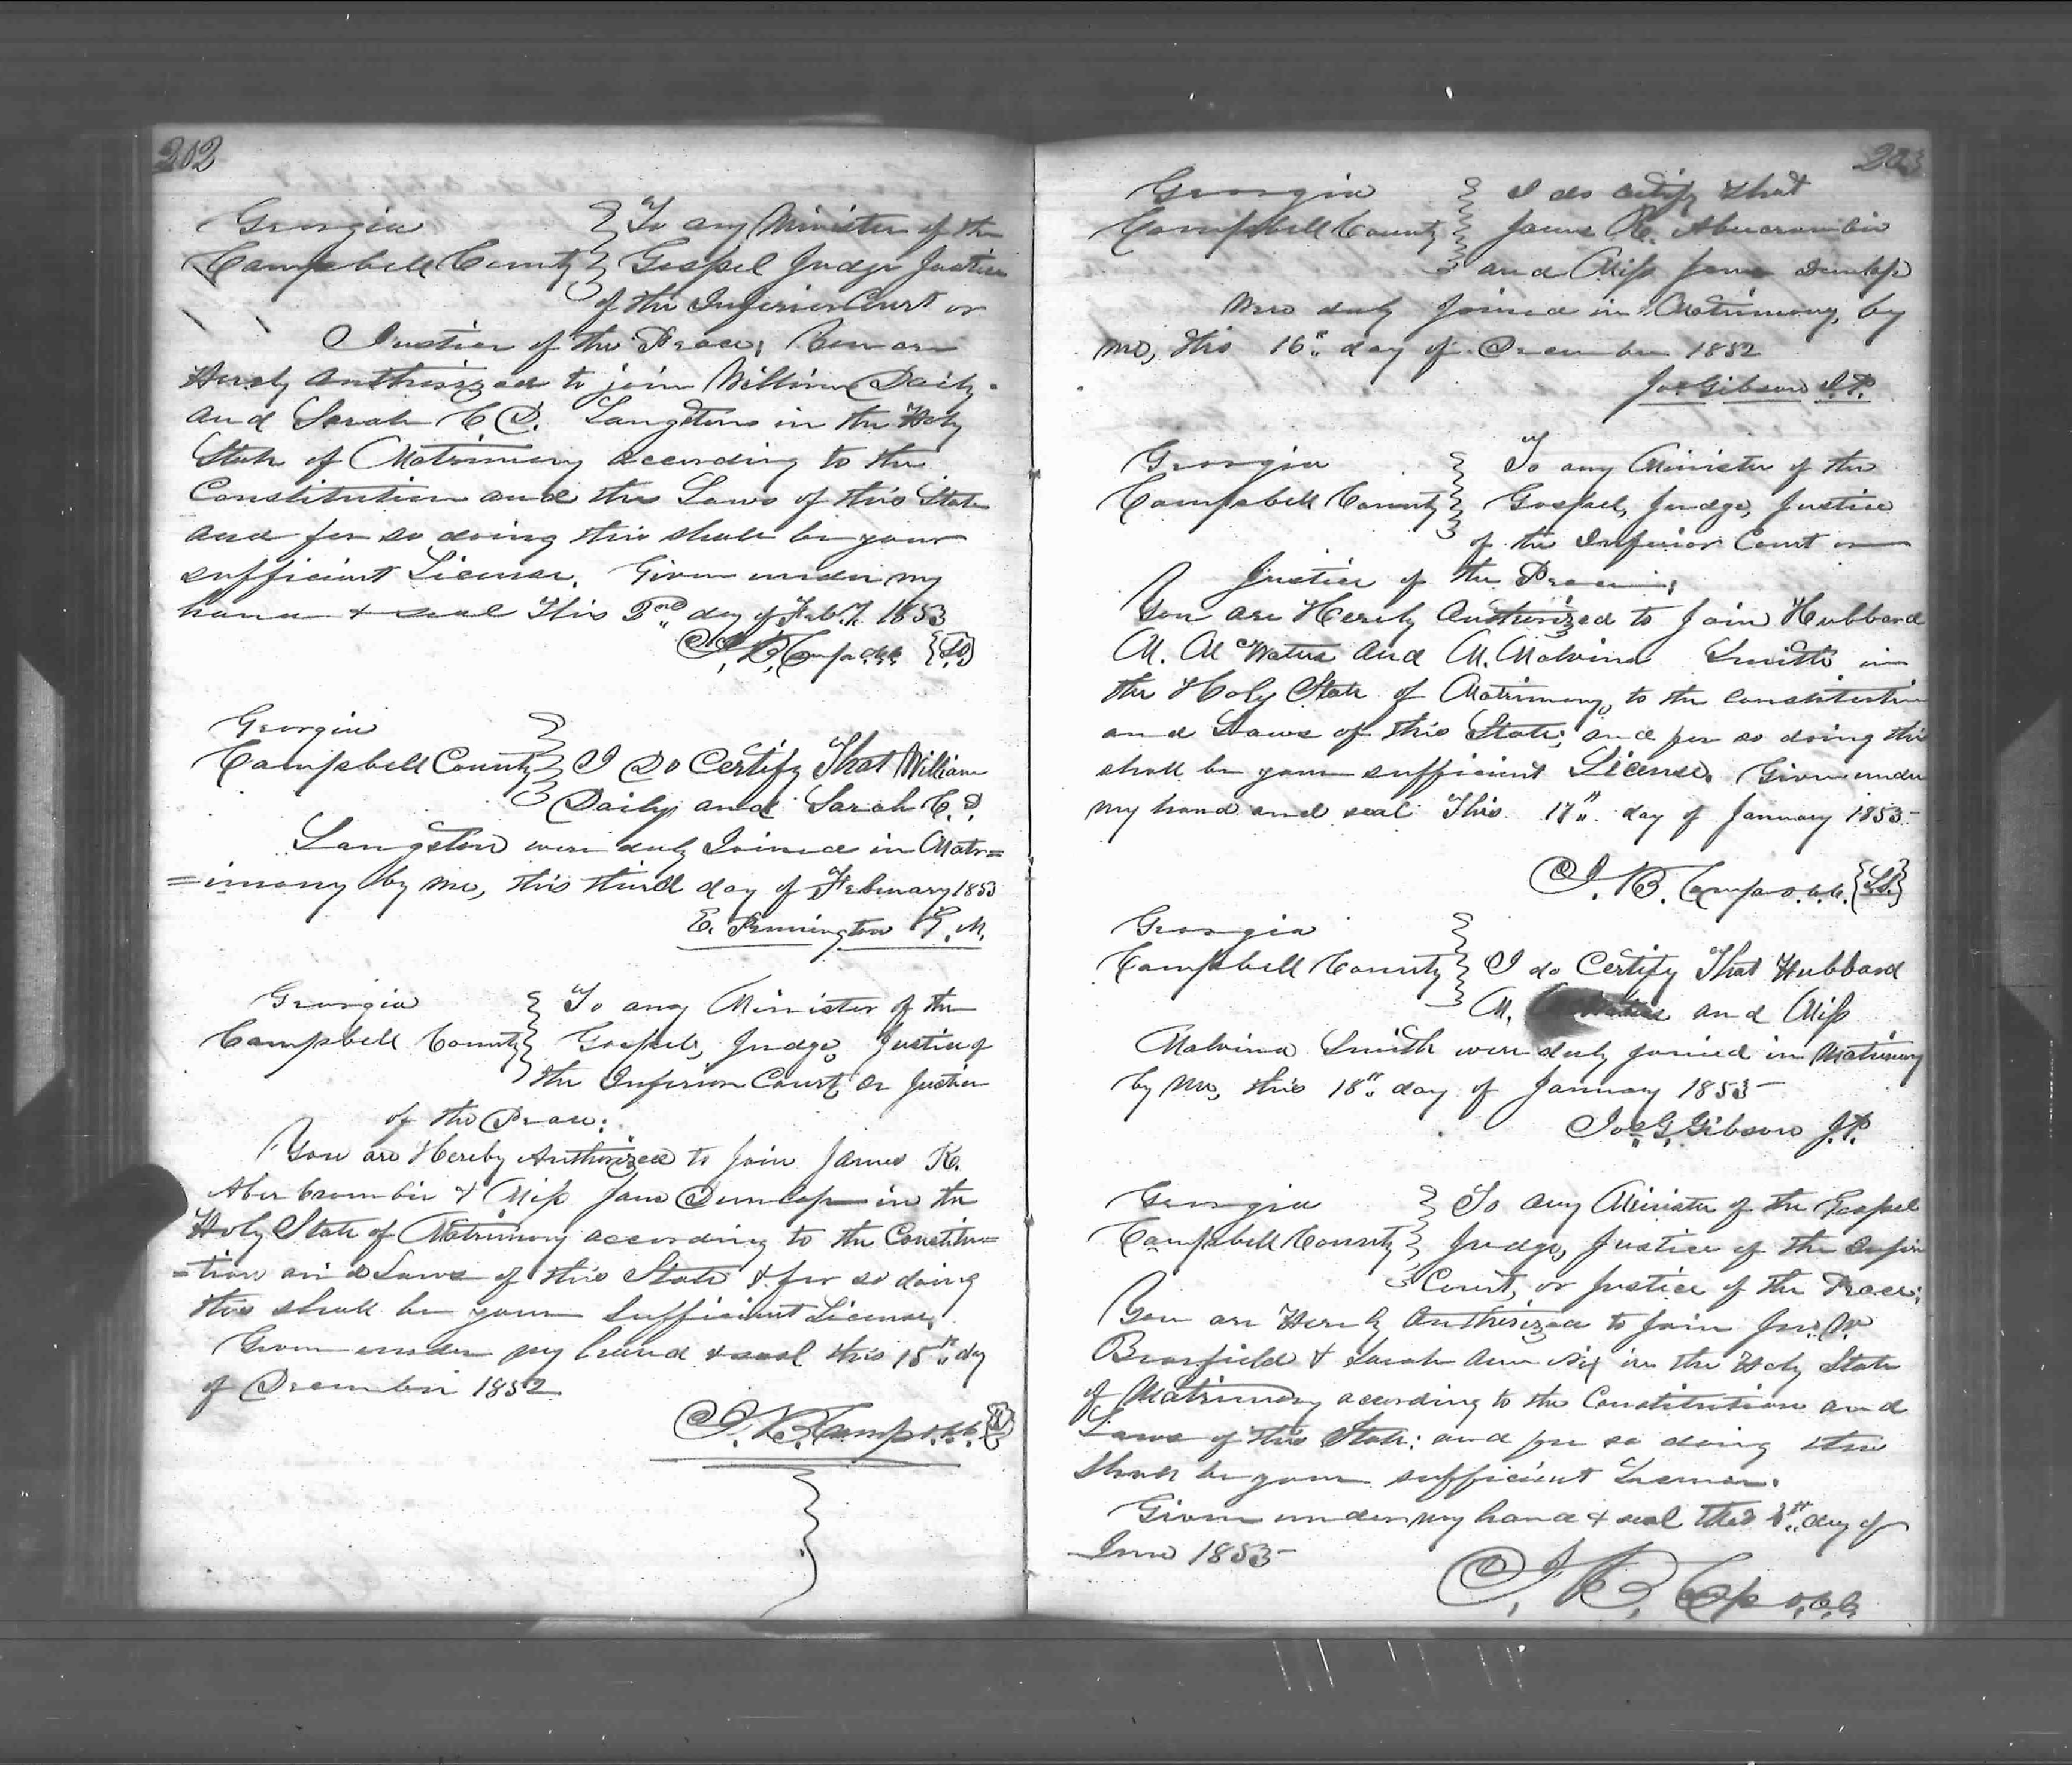 202
Georgia } To any Minister of the
Campbell County } Gospel Judge Justice
of the Inferior Court or
Justice of the Peace; You are
Herely Authorized to join William Daily
and Sarah C D. Langston in the Holy
State of Matrimony according to the
Constitution and the Laws of this State
and for so doing this shall be your
sufficient License. Given under my
hand & seal This 2nd day of Feby. 1853
J. B. Camp c.c.o. {LS}
Georgia
Campbell County } I Do Certify That William
Daily and Sarah C. D.
Langston were duly Joined in Matr=
=imony by me, this third day of February 1853
E. Pennington G. M.
Georgia } To any Minister of the
Campbell County } Gospel, Judge, Justice of
the Inferior Court, or Justice
of the Peace:
You are Hereby Authorized to Join James R.
Abercrombie & Miss Jane Dunlap in the
Holy State of Matrimony according to the Constitu=
=tion and Laws of this State & for so doing
this shall be your sufficient License.
Given under my hand & seal this 15th day
of December 1852
J. B. Camp c.c.o.
203
Georgia } I do certify that
Campbell County } James R. Abercrombie
and Miss Jane Dunlap
were duly Joined in Matrimony, by
me, this 16th day of December 1852
Jos Gibson J.P.
Georgia } To any Minister of the
Campbell County } Gospel, Judge, Justice
of the Inferior Court or
Justice of the Peace;
You are Herely Authorized to Join Hubbard
M. McWaters and M. Malvina Smith in
the Holy State of Matrimony, to the constitution
and Laws of this State; and for so doing this
shall be your sufficient License. Given under
my hand and seal This 17th day of January 1853
J. B. Camp o.c.c. {LS}
Georgia
Campbell County } I do Certify That Hubbard
M. and Miss
Malvina Smith were duly joined in Matrimony
by me, this 18th day of January 1853
Jos G. Gibson J.P.
Georgia } To any Minister of the Gospel
Campbell County } Judge, Justice of the
Court, or Justice of the Peace;
You are Herely Authorized to Join Jno. W.
& Sarah Ann Nix in the Holy State
of Matrimony according to the Constitution and
Laws of this State; and for so doing this
shall be your sufficient License.
Given under my hand & seal this day of
June 1853
J. B. Camp o.c.c.